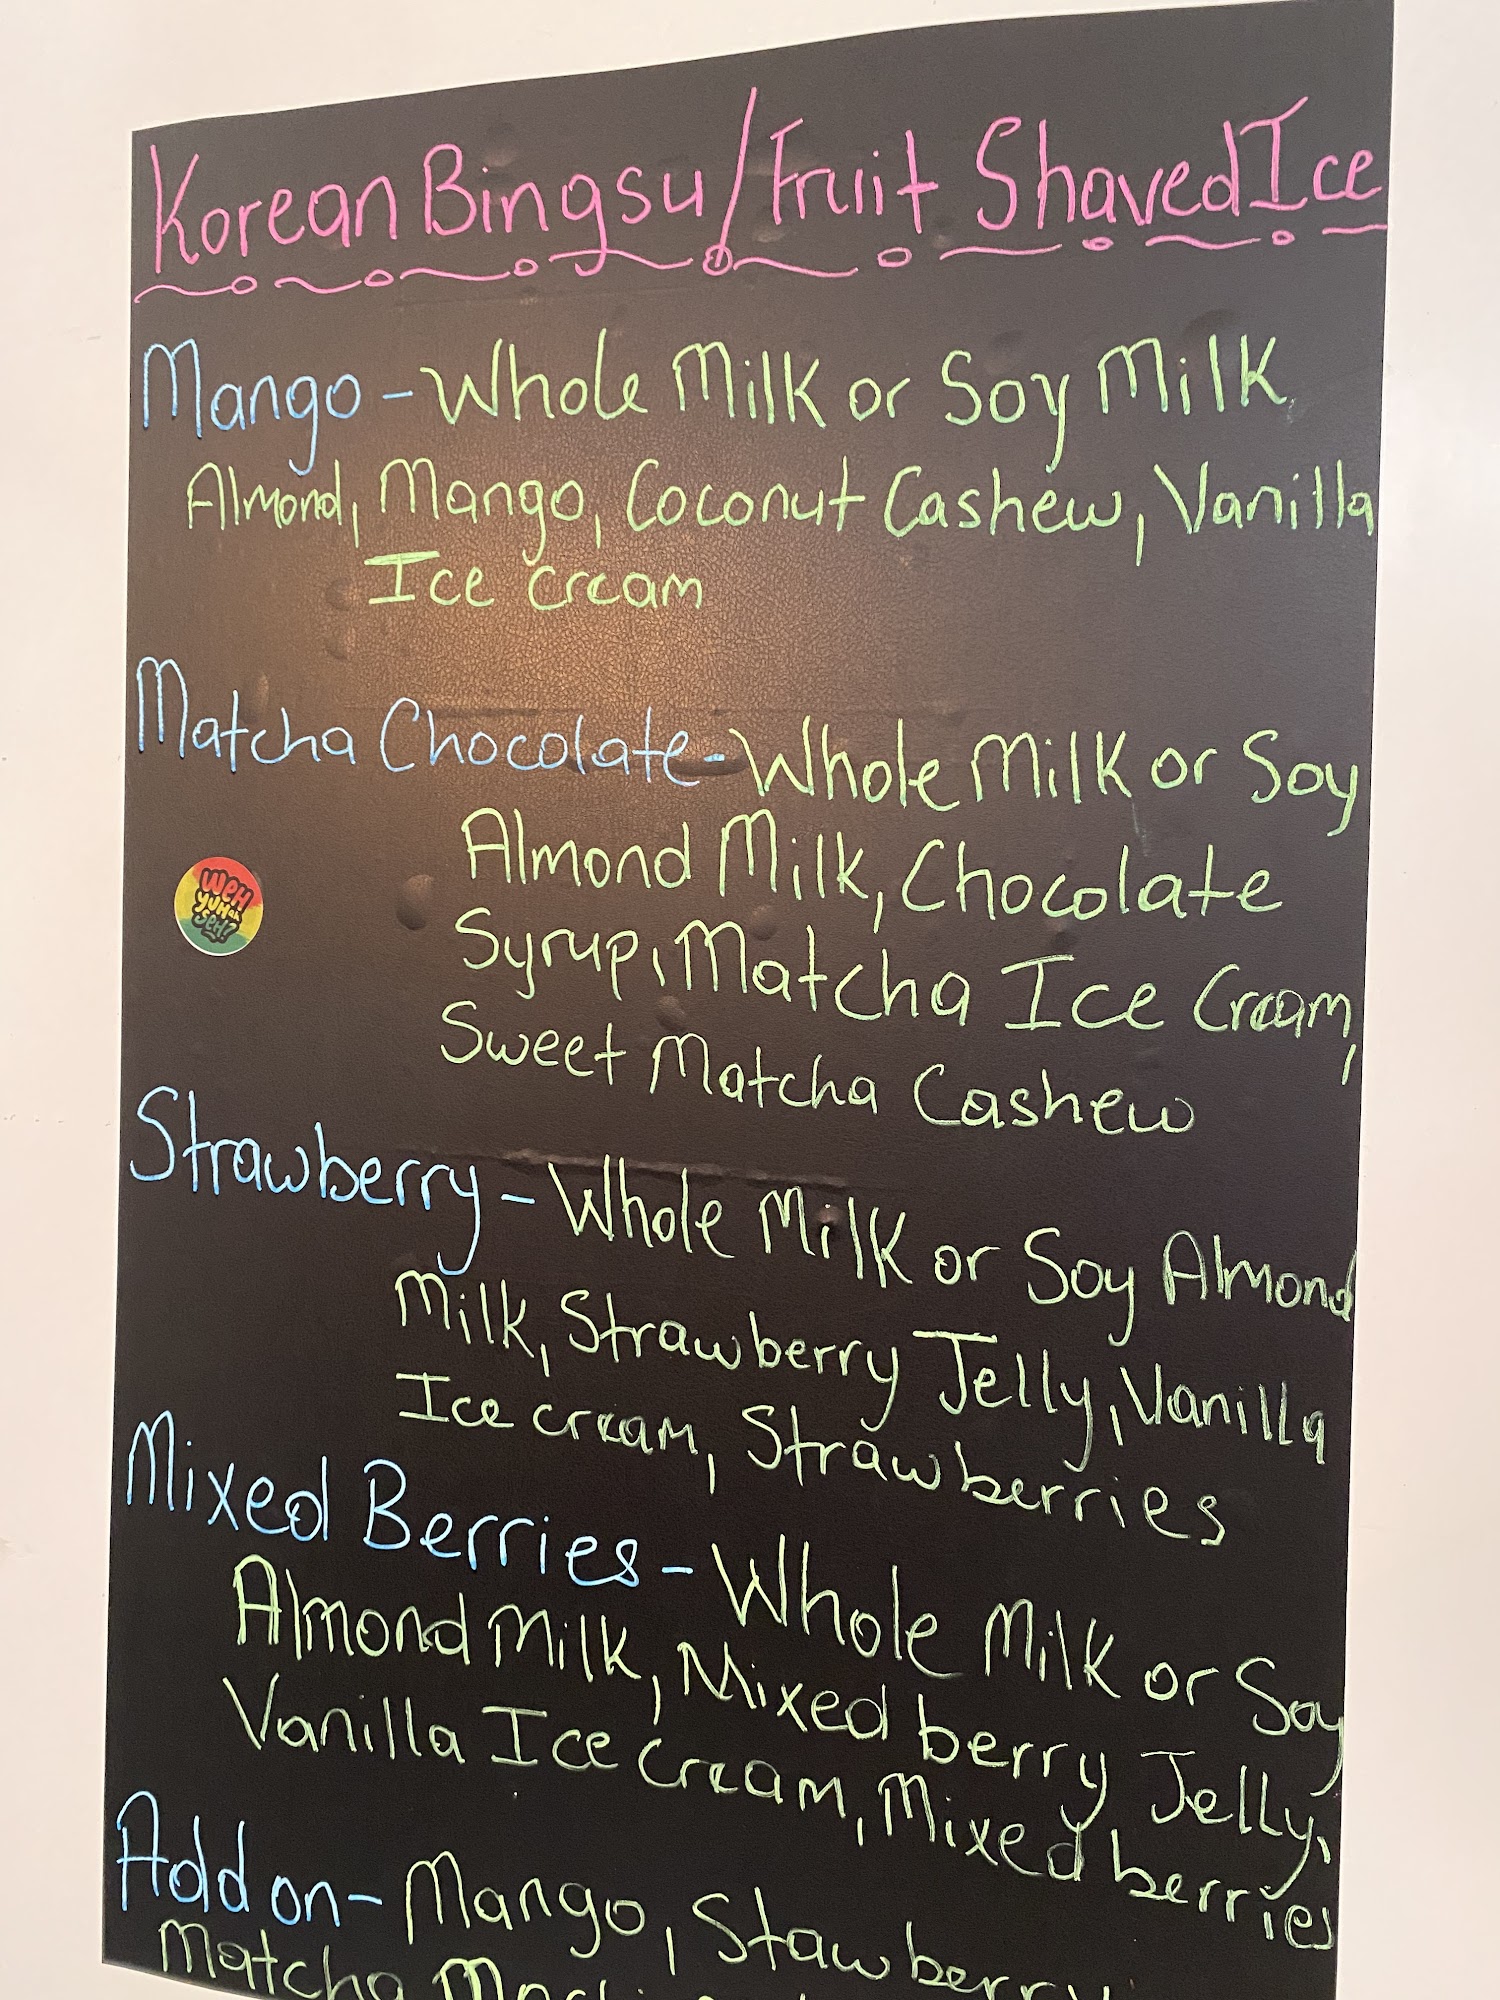 Korean Bingsu/Fruit Shaved Ice
Mango - Whole Milk or Soy Milk
Almond, Mango, Coconut Cashew, Vanilla
Ice cream
Matcha Chocolate - Whole Milk or Soy
Almond Milk, Chocolate
Syrup, Matcha Ice Cream,
Sweet Matcha Cashew
WEH
YUH
SEH?
Strawberry - Whole Milk or Soy Almond
Milk, Strawberry Jelly, Vanilla
Ice cream, Strawberries
Mixed Berries - Whole Milk or Soy
Almond Milk, Mixed berry Jelly,
Vanilla Ice Cream, Mixed berries
Add on - Mango, Stawberry
Matcha